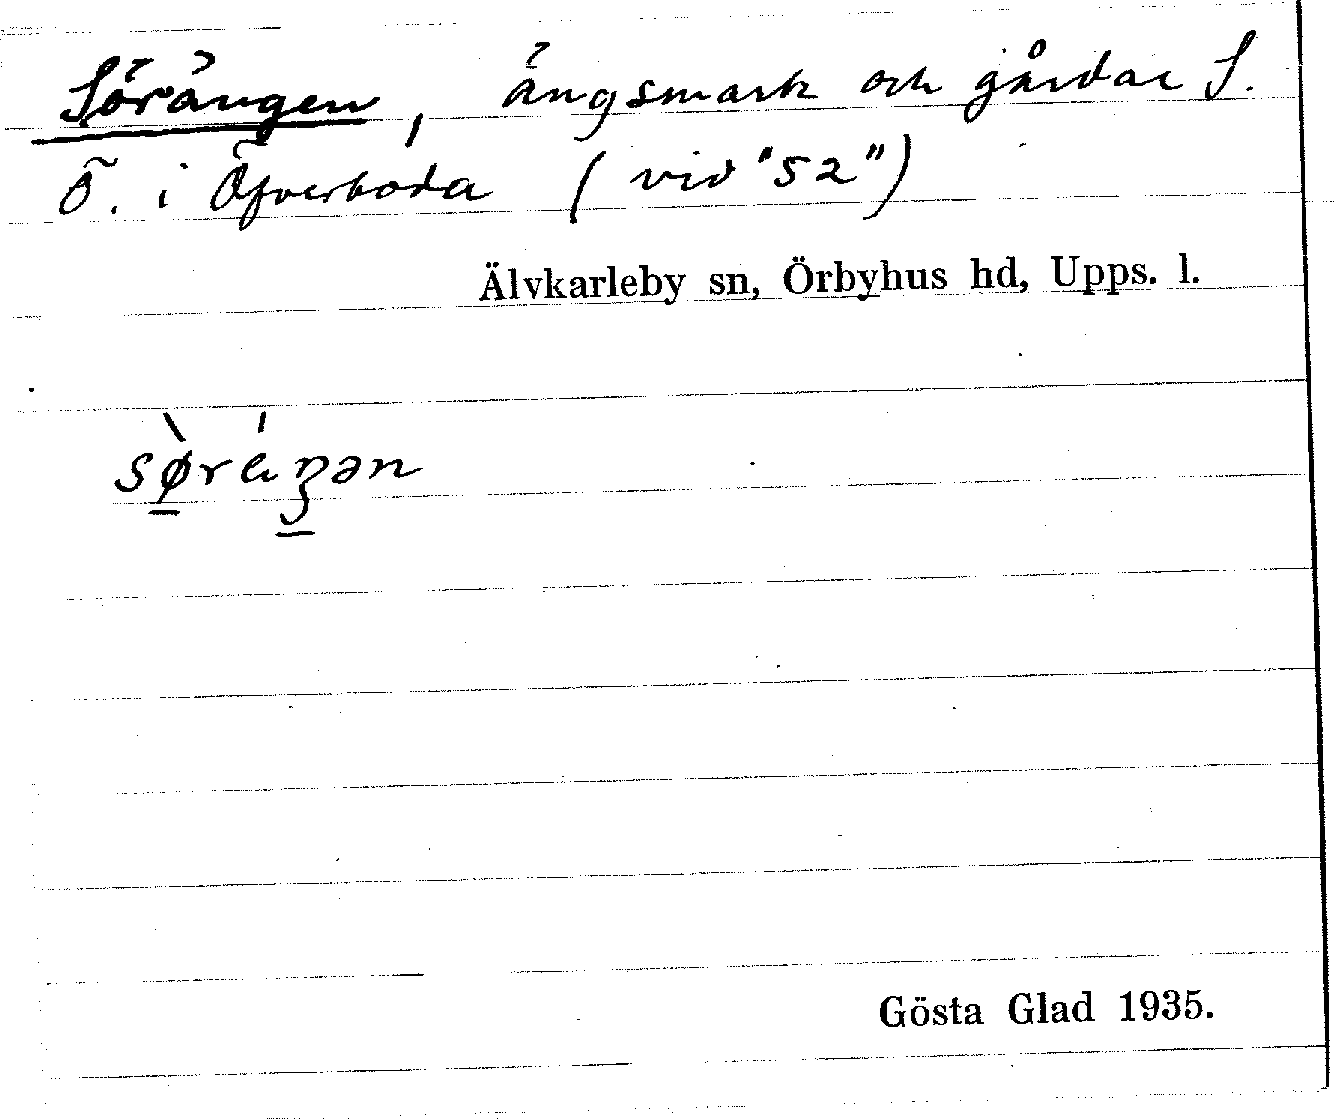 Sörängen, ängsmark och gårdar S.
Ö. i Öfverboda (vid "52")
Älvkarleby sn, Örbyhus hd, Upps. l.
sø̀ráŋən
Gösta Glad 1935.